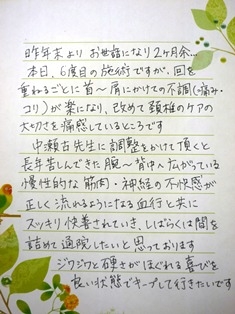 昨年末より お世話になり2ヶ月余…
本日、6度目の施術ですが、回を
重ねるごとに首〜肩にかけての不調(痛み・
コリ)が楽になり、改めて頚椎のケアの
大切さを痛感しているところです
中瀬古先生に調整をかけて頂くと
長年苦しんできた腕〜背中へ広がっている
慢性的な筋肉・神経の不快感が
正しく流れるようになる血行と共に
スッキリ快善されていき、しばらくは間を
詰めて通院したいと思っております
ジワジワと硬さがほぐれる喜びを
良い状態でキープして行きたいです